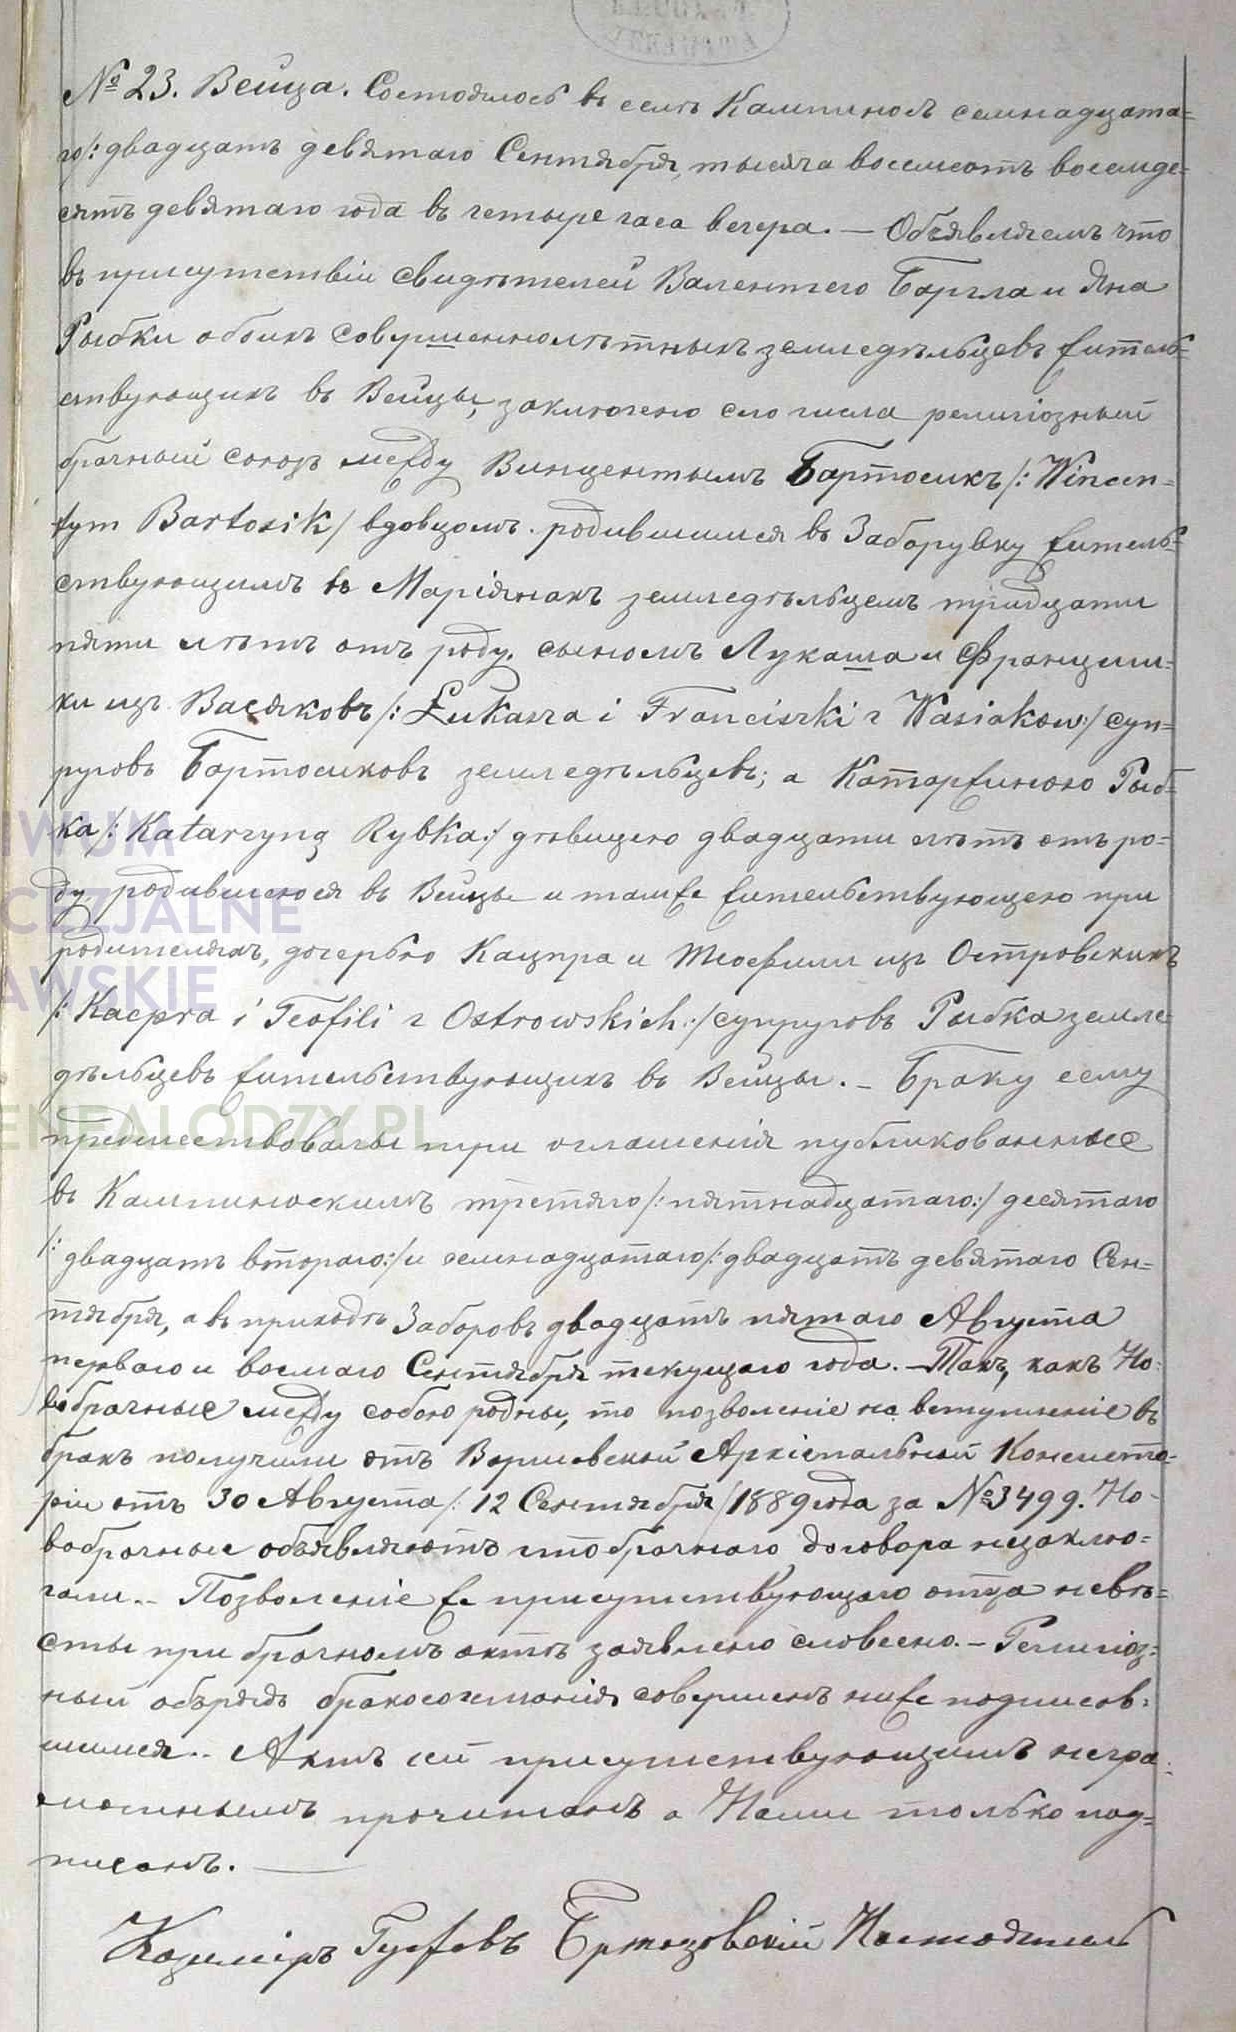 № 23. Вейца. Состоялось въ селѣ Кампиносѣ семнадцата-
го /: двадцать девятаго Сентября, тысяча восемсотъ восемде-
сятъ девятаго года въ четыре часа вечера. — Объявляемъ что
въ присутствіи свидѣтелей Валентего Баргла и Яна
Рыбки обоихъ совершеннолѣтныхъ земледѣльцевъ житель-
ствующихъ въ Вейцы, заключено сего числа религіозный
брачный союзъ между Винцентымъ Бартосикъ /: Wincen-
tym Bartosik / вдовцомъ родившимся въ Заборувку житель-
ствующимъ въ Маріянкахъ земледѣльцемъ тридцати
пяти лѣтъ отъ роду, сыномъ Лукаша и Францишки-
ки изъ Васяковъ /: Łukasza i Franciszki z Wasiaków :/ суп-
руговъ Бартосиковъ земледѣльцевъ; а Катаржиною Рыб-
ка /: Katarzyną Rybka :/ дѣвицею двадцати лѣтъ отъ ро-
ду, родившеюся въ Вейцы и тамже жительствующею при
родителяхъ, дочерью Кацпра и Теофили изъ Островскихъ
/: Kacpra i Teofili z Ostrowskich :/ супруговъ Рыбка земле-
дѣльцевъ жительствующихъ въ Вейцы. — Браку сему
предшествовалы три оглашенія публикованные
въ Кампиноскимъ третяго /: пятнадцатаго :/ десятаго
/: двадцать втораго :/ и семнадцатаго /: двадцать девятаго Сен-
тября, а въ приходѣ Заборовъ двадцать пятаго Августа
перваго и восмаго Сентября текущаго года. — Такъ, какъ Но-
вобрачные между собою родны, то позволеніе на вступленіе въ
бракъ получили отъ Варшавской Архіепальный Консисто-
ріи отъ 30 Августа /: 12 Сентября / 1889 года за № 3499. Но-
вобрачные объявляютъ что брачнаго договора незаклю-
чали. — Позволеніе же присутствующаго отца невѣ-
сты при брачномъ актѣ заявлено словесно. — Религіоз-
ный обрядъ бракосочетанія совершенъ ниже подписав-
шимся. — Актъ сей присутствующимъ негра-
мотнымъ прочитанъ а Нами только под-
писанъ. —